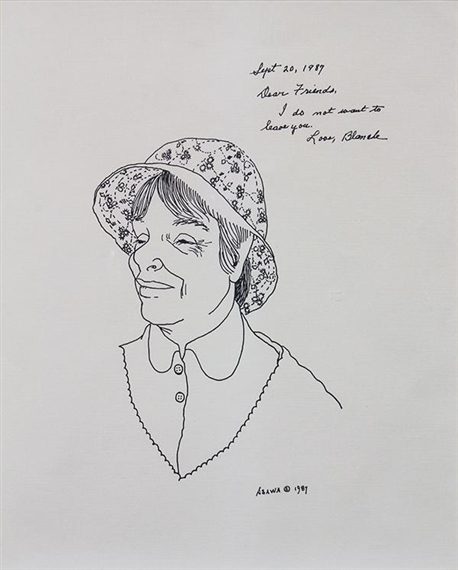 Sept 20, 1987
Dear Friends,
I do not want to
leave you.
Love, Blanche
ASAWA © 1987